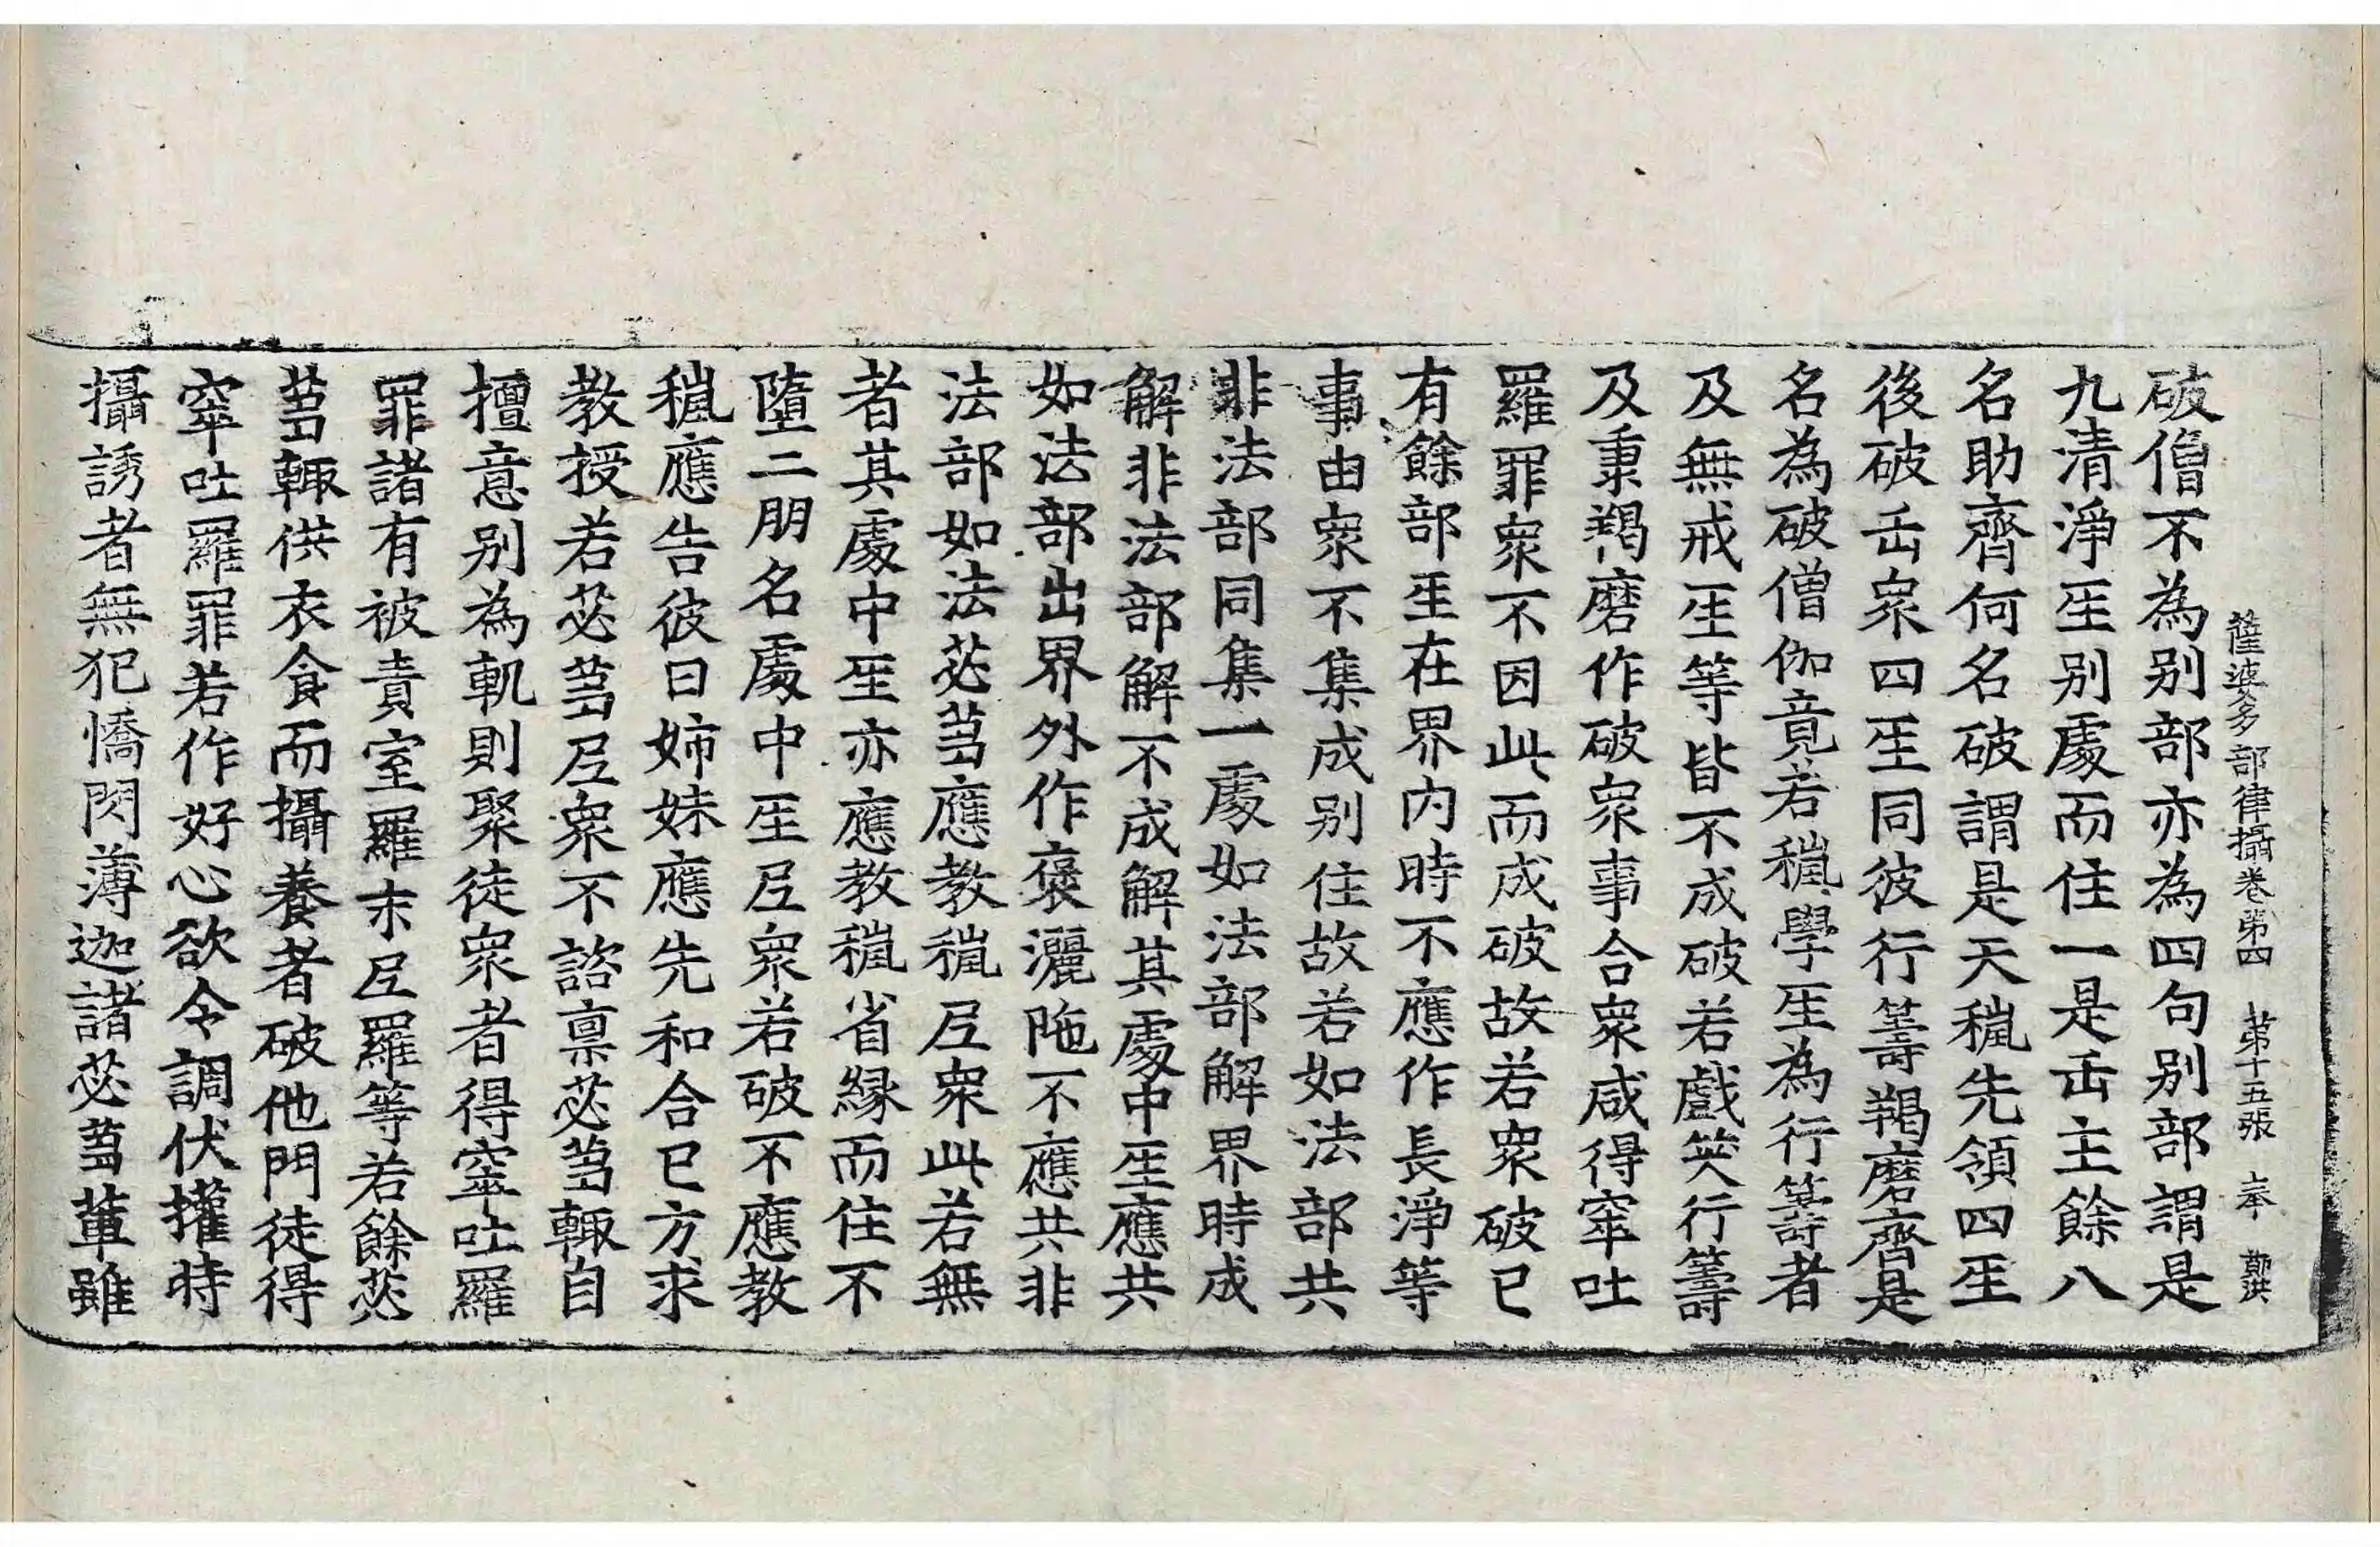 薩婆多部律攝卷第四　第十五張　上本　鄭洪
破僧不為别部亦為四句别部謂是
九清淨𤯔别處而住一是𠙺主餘八
名助齊何名破謂是天𥠢先領四𤯔
後破𠙺衆四𤯔同彼行籌羯磨齊是
名為破僧伽竟若𥠢學𤯔為行籌者
及無戒𤯔等皆不成破若戲笑行籌
及秉羯磨作破衆事合衆咸得窣吐
羅罪衆不因此而成破故若衆破已
有餘部𤯔在界内時不應作長淨等
事由衆不集成别住故若如法部共
非法部同集一處如法部解界時成
解非法部解不成解其處中𤯔應共
如法部出界外作褒灑陁不應共非
法部如法苾蒭應教𥠢尼衆此若無
者其處中𤯔亦應教𥠢省縁而住不
墮二朋名處中𤯔尼衆若破不應教
𥠢應告彼曰姉妹應先和合已方求
教授若苾蒭尼衆不諮禀苾蒭輙自
擅意别為軌則聚徒衆者得窣吐羅
罪諸有被責室羅末尼羅等若餘苾
蒭輙供衣食而攝養者破他門徒得
窣吐羅罪若作好心欲令調伏攉時
攝誘者無犯憍閃薄迦諸苾蒭輩雖